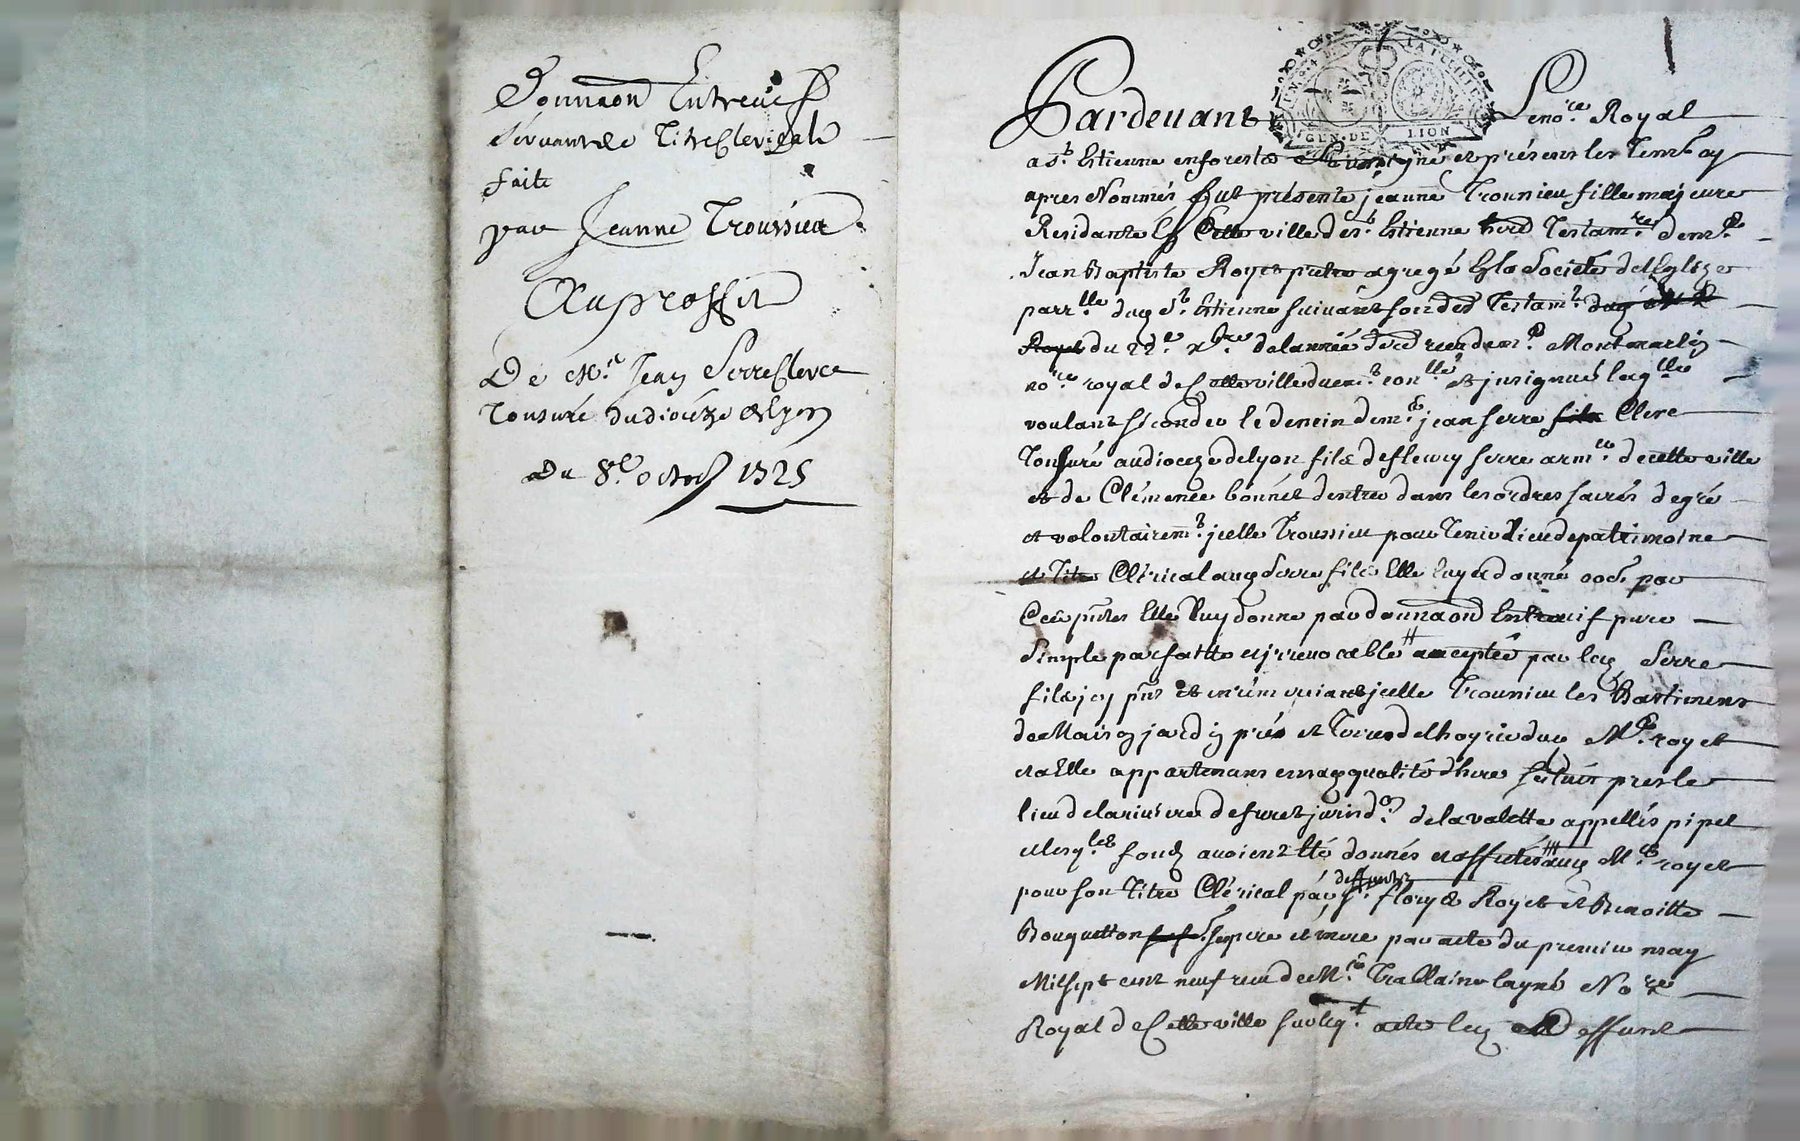 Donnaon Entrevif
servant de Titre Clerical
faite
par Jeanne Troussieu
Au proffit
De Me. Jean Serre Clerc
Tonsuré du diocèze de Lyon
Du 8e. octob 1725
GEN. DE LION
Pardevant Le no.re Royal
a St. Estienne en forests et présens les Temoy
apres Nommés fut présente jeanne Troussieu fille majeure
Residante En Cette ville de st. Estienne Testam.re de m.e
Jean Baptiste Royet prêtre agregé En la Societé del Eglize
parr.lle dud St. Estienne suivant son Testam.t
Royet du 22.e x.bre de l'année reçeu de m.e Montmarlin
no.re royal de Cette ville et jnsignué laq.lle
voulant seconder le dessein de m.e jean serre fils Clerc
Tonsuré au dioceze de lyon fils de fleury serre arm.er de cette ville
et de Clémence bonnet d'entrer dans les ordres sacrés de gré
et volontairem.t jcelle Troussieu pour Tenir Lieu de patrimoine
et Titre Clérical aud Serre fils Elle luy a donné par
Ces p.ntes Elle luy donne par donnaon Entrevif pure
simple parfaitte et jrrevocable acceptée par led Serre
fils jcy p.nt et jcelle Troussieu les Bastimens
de Maison jardin prés et Terres de l'hoyrie dud M.e royet
et a Elle appartenans en sad qualité d'here situés pres le
lieu de la riviere de furet jurisd.on de la valette appellés pipet
et lesq.les fonds avoient été donnés et affectés aud M.e royet
pour son titre Clérical par deffunts s.r fleury Royet et Benoitte
Bouquetton ses pere et mere par acte du premier may
Mil sept cent neuf receu de M.e Trablaine layné No.re
Royal de Cette ville suiv leq.l acte led deffunt